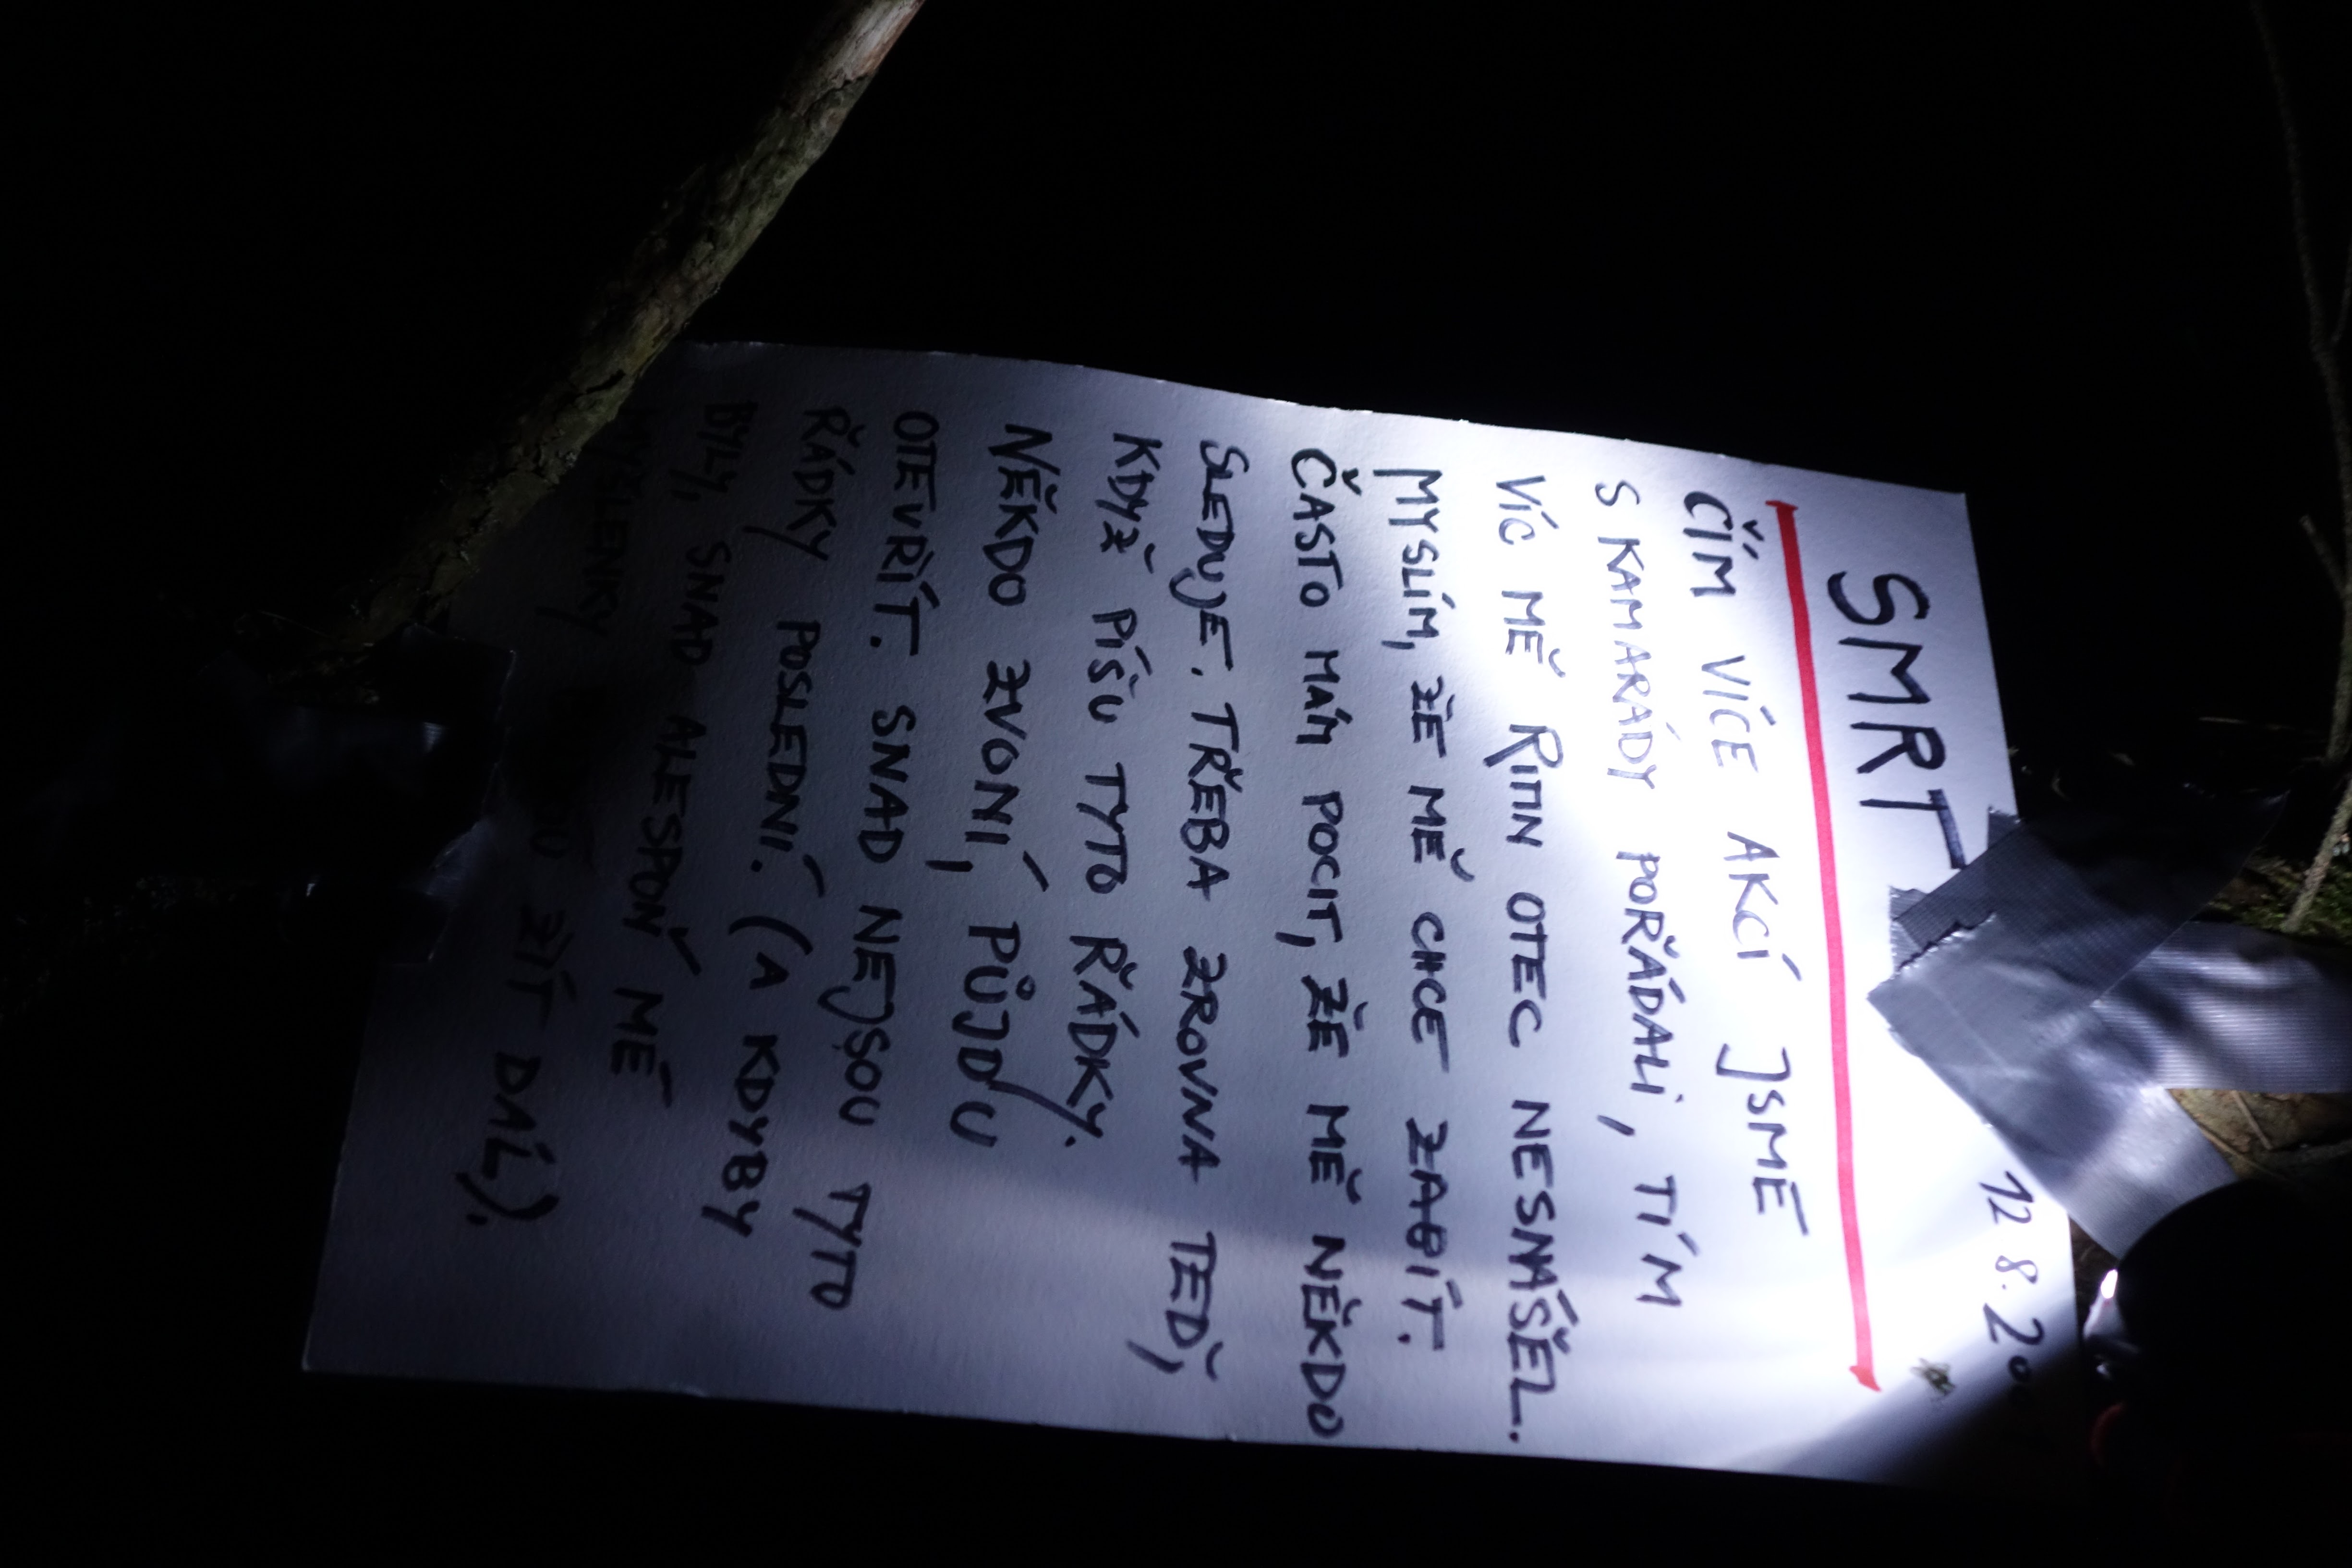 12 8. 20
SMRT
ČÍM VÍCE AKCÍ JSME
S KAMARÁDY POŘÁDALI, TÍM
VÍC MĚ RITIN OTEC NESNÁŠEL.
MYSLÍM, ŽE MĚ CHCE ZABÍT.
ČASTO MÁM POCIT, ŽE MĚ NĚKDO
SLEDUJE. TŘEBA ZROVNA TEĎ,
KDYŽ PÍŠU TYTO ŘÁDKY.
NĚKDO ZVONÍ, PŮJDU
OTEVŘÍT. SNAD NEJSOU TYTO
ŘÁDKY POSLEDNÍ. (A KDYBY
BYLY, SNAD ALESPOŇ MÉ
MYŠLENKY BUDOU ŽÍT DÁL).